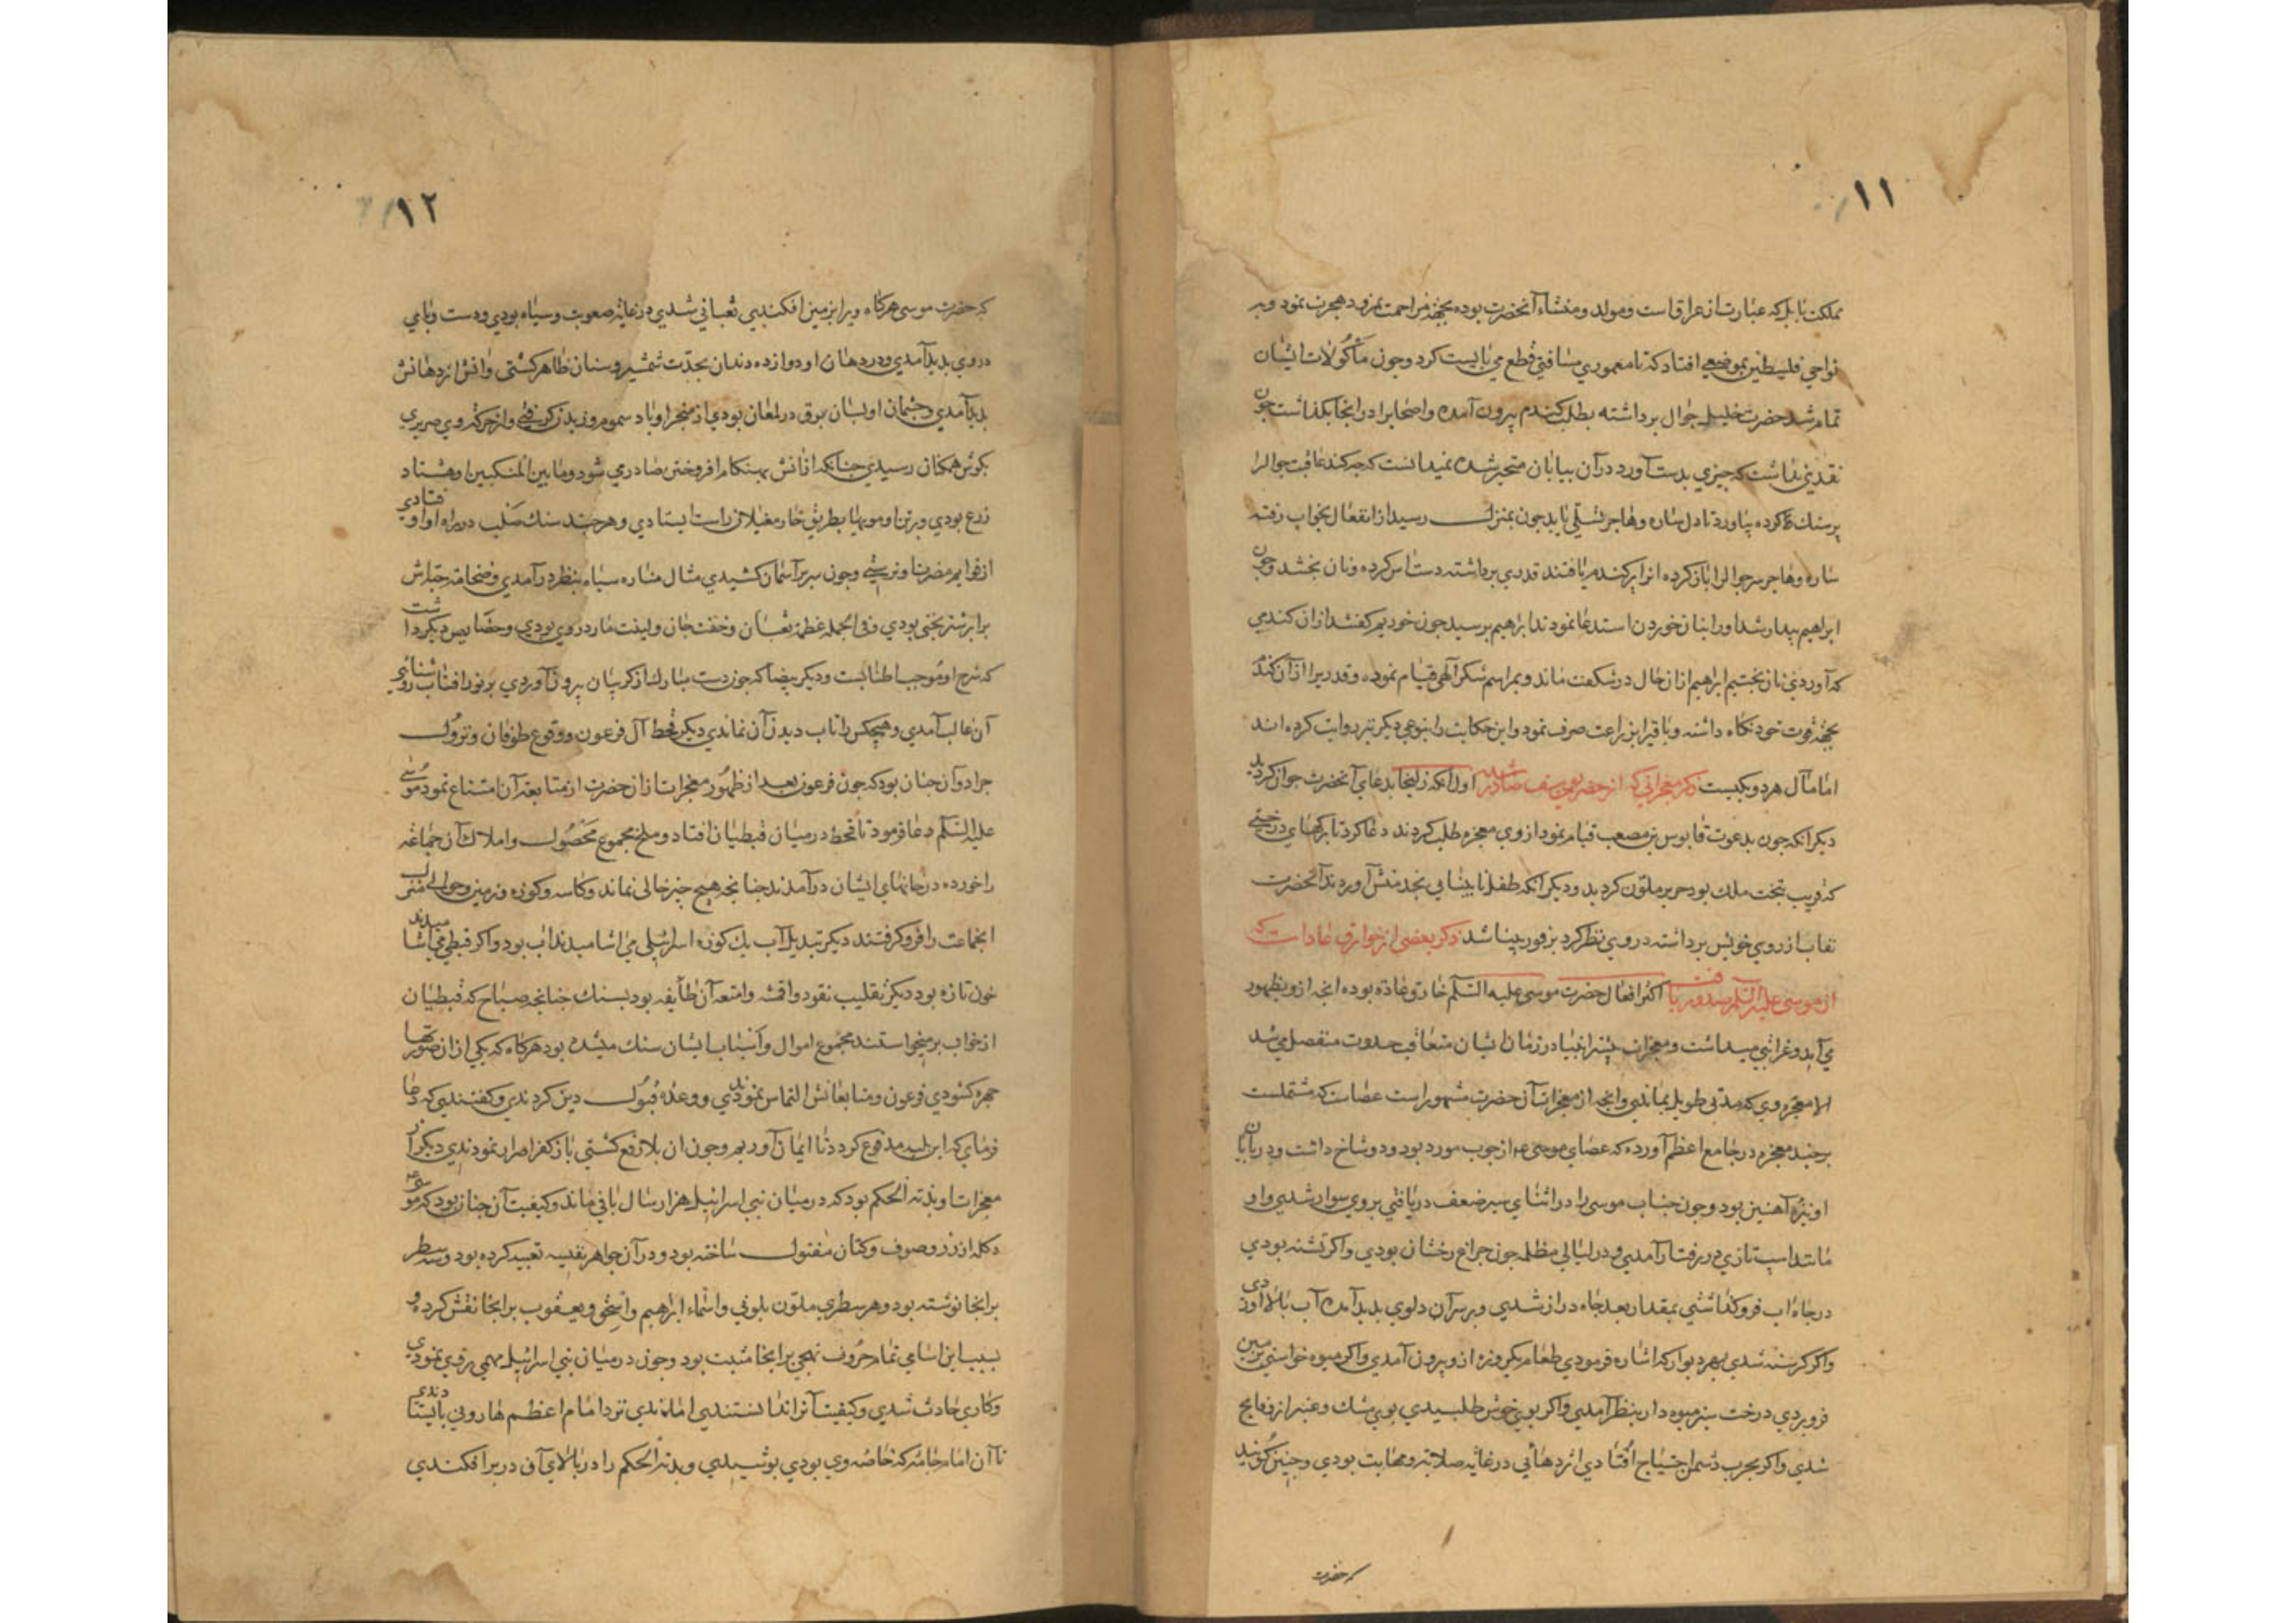 ١١
مملکت بابل که عبارت از عراق است ومولد ومنشاء آنحضرت بوده بجهة مزاحمت نمرود هجرت نمود وبه
نواحی فلسطین بموضعی افتاد که تا معموری مسافتی قطع می بایست کرد وجون مأکولات ایشان
تمام شد حضرت خلیل جوال برداشته بطلب کندم بیرون آمده واصحابرا در انجا بکذاشت جون
نقدی نداشت که جیزی بدست آورد در آن بیابان متحیر شده نمیدانست که جه کند عاقبت جوالرا
بر سنك کرده بیاورد تا دل ساره وهاجر تسلی یابد جون بمنزل رسید از انفعال بخواب رفته
ساره وهاجر سر جوالرا باز کرده انرا بر کندم یافتند قدری برداشته دستاس کرده ونان بختند وجون
ابراهیم بیدار شد اورا بنان خوردن استدعا نمودند ابراهیم برسید جون خوردیم کفتند ازان کندمی
که آوردی نان بختیم ابراهیم ازان حال در شکفت ماند وبمراسم شکر آلهی قیام نموده وقدریرا ازان کندم
بجهة قوت خود نکاه داشته وباقیرا بزراعت صرف نمود واین حکایت را بنوعی دیکر نیز روایت کرده اند
اما مآل هردو یکیست ذکر معجزاتی که از حضرت یوسف صادر شده اول آنکه زلیخا بدعای آنحضرت جوان کردید
دیکر انکه جون بدعوت قابوس بن مصعب قیام نمود از وی معجزه طلب کردند دعا کرد تا برکهای درختی
که قریب بتخت ملك بود حریر ملون کردید ودیکر انکه طفل نابینایی بخدمتش آوردند آنحضرت
نقاب از روی خویش برداشته در وی نظر کرد بر فور بینا شد ذکر بعضی از خوارق عادات که
از موسی علیه السلم صدور یافت اکثر افعال حضرت موسی علیه السلم خارق عاده بوده انجه ازو بظهور
می آید وغرابتی میداشت ومعجزات بیشتر انبیا در زمان ایشان متعاقب حدوث منفصل می شد
الا معجزه وی که مدتی طویل بماندی وانجه از معجزات آن حضرت مشهور است عصاست که مشتملست
بر جند معجزه در جامع اعظم آورده که عصای موسی ع م از جوب مورد بود ودو شاخ داشت ودر بایان
او نیزه آهنین بود وجون جناب موسی را در اثنای سیر ضعف دریافتی بر وی سوار شدی واو
مانند اسب تازی در رفتار آمدی ودر لیالی مظلمه جون جراغ رخشان بودی واکر تشنه بودی
در جاه اب فرو کذاشتی بمقدار بعد جاه دراز شدی وبر سر آن دلوی بدید آمده آب بالا اوردی
واکر کرسنه شدی بهر دیوار که اشاره فرمودی طعام یکروزه ازو بیرون آمدی واکر میوه خواستی بزمین
فروبردی درخت سبز میوه دار بنظر آمدی واکر بوی خوش طلبیدی بوی مشك وعنبر از فایح
شدی واکر بحرب دشمن احتیاج افتادی اژدهائی در غایة صلابت ومهابت بودی وجنین کویند
که حضرت
١٢
که حضرت موسی هرکاه ویرا بزمین افکندی ثعبانی شدی در غایة صعوبت وسیاه بودی ودست وبای
در وی بدید آمدی ودر دهان او دوازده دندان بحدت شمشیر وسنان ظاهر کشتی واتش از دهانش
بدید آمدی وجشمان او بسان برق در لمعان بودی از منخر او باد سموم وزیدن کرفتی واز حرکة وی صریری
بکوش همکنان رسیدی جنانکه از اتش بهنکام افروختن صادر می شود وما بین المنکبین او هشتاد
ذرع بودی وبر تن او مویها بطریق خار مغیلان راست ایستادی وهر جند سنك صلب در راه او اوفتادی
از قوایم مضر نا ونرستی وجون سر بر آسمان کشیدی مثال مناره سیاه بنظر درآمدی وضخامة جثه اش
برابر شتر بختی بودی وفی الجمله عظمة ثعبان وخفت جان ولینت مار در وی بودی وخصایص دیکر داشت
که شرح او موجب اطنابست ودیکر ید بیضا که جون دست مبارك از کریبان بیرون آوردی بر نور افتاب روشنائی
آن غالب آمدی وهیجکس را تاب دیدن آن نماندی دیکر قحط آل فرعون ووقوع طوفان ونزول
جراد وآن جنان بود که جون فرعون بعد از ظهور معجزات از ان حضرت از متابعة آن امتناع نمود موسی
علیه السلم دعا فرمود تا قحط در میان قبطیان افتاد وملخ مجموع محصول واملاك آن جماعة
را خورده در خانهای ایشان درآمدند جنانجه هیج جیز خالی نماند وکاسه وکوزه وزمین وحوالی منزل
انجماعت را فرو کرفتند دیکر تبدیل آب یك کوزه اسرائیلی می اشامیدند آب بود واکر قبطی می آشامیدند
خون تازه بود دیکر تقلیب نقود واقمشه وامتعه آن طایفه بود بسنك جنانجه صباح که قبطیان
از خواب برمیخواستند مجموع اموال واسباب ایشان سنك میشده بود هرکاه که یکی ازان صورتها
جهره کشودی فرعون ومتابعانش التماس نمودندی ووعده قبول دین کردندی وکفتندی که دعا
فرمای که این بلیه مدفوع کردد تا ایمان آوریم وجون ان بلا رفع کشتی باز کفر اصرار نمودندی دیکر از
معجزات او بدنة الحکم بود که در میان بنی اسرائیل هزار سال باقی ماند وکیفیت آن جنان بود که موسی ع م
دکله از زر وصوف وکتان مفتول ساخته بود ودر آن جواهر نفیسه تعبیه کرده بود وسه سطر
برانجا نوشته بود وهر سطری ملون بلونی واسماء ابراهیم واسحق ویعقوب برانجا نقش کرده و
بسبب این اسامی تمام حروف تهجی برانجا مثبت بود وجون در میان بنی اسرائیل مهمی روی نمودی
وکاری حادث شدی وکیفیت آنرا ندانستندی امدندی نزد امام اعظم هارونی بایستادندی
تا آن امام جامه که خاصه وی بودی بوشیدی وبدنة الحکم را در بالای آن در بر افکندی